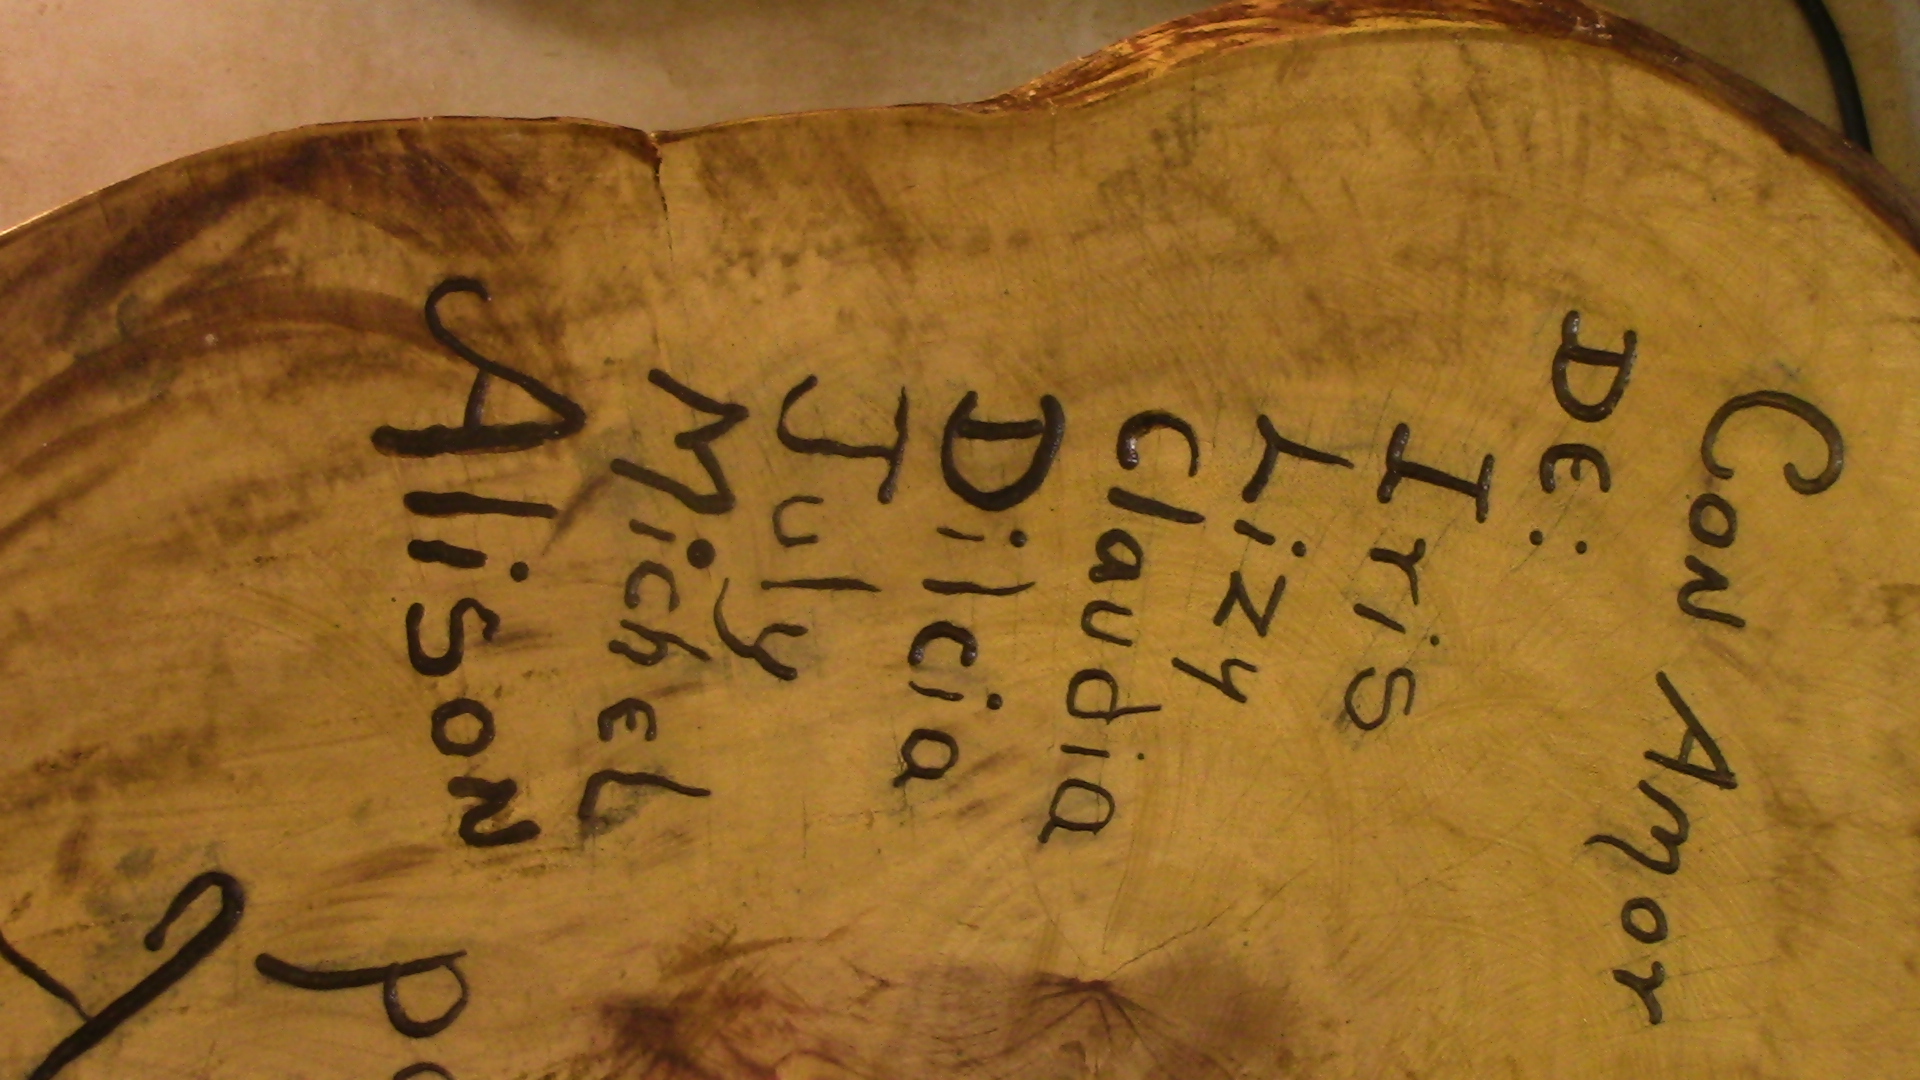 Con Amor
De:
Iris
Lizy
Claudia
Dilcia
July
Michel
Alison